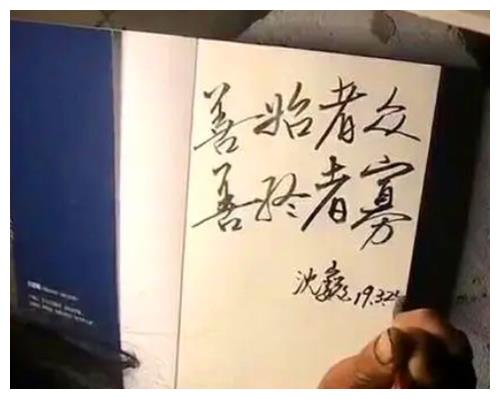 善始者众
善终者寡
沈巍 19.3.25